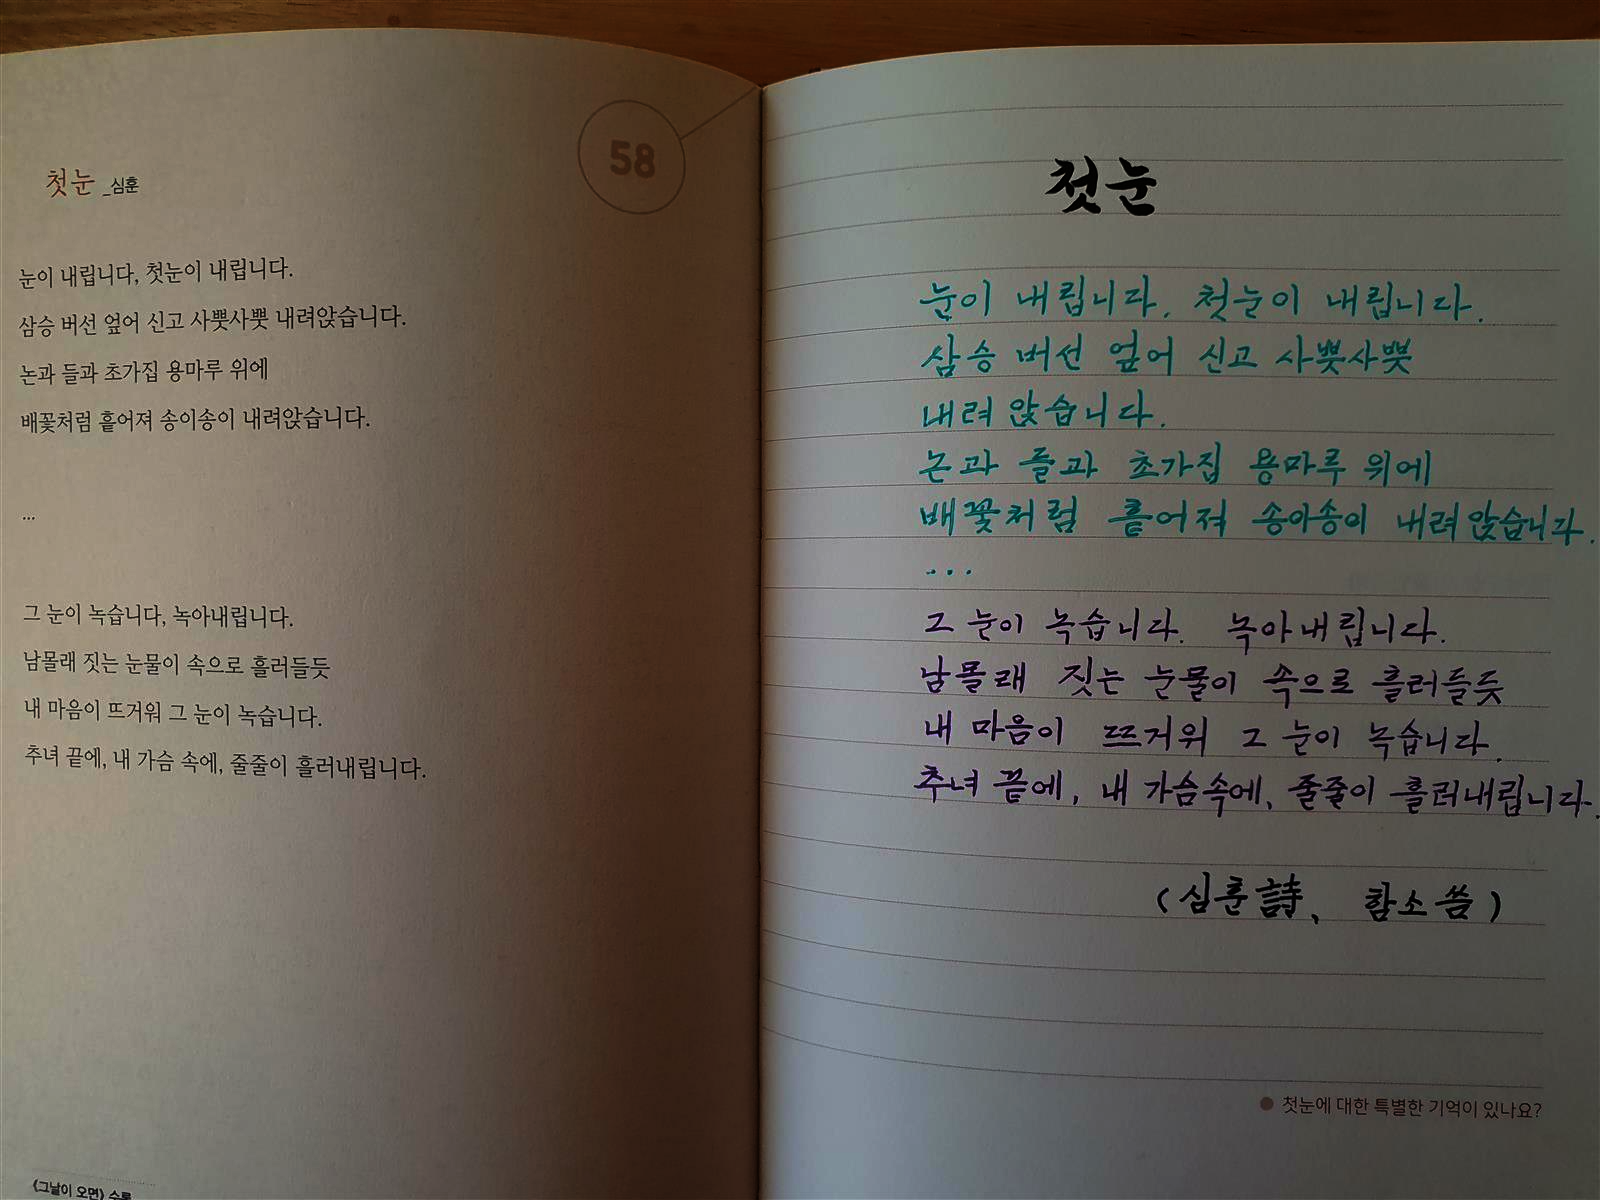 58
첫눈 _심훈
눈이 내립니다, 첫눈이 내립니다.
삼승 버선 엎어 신고 사뿟사뿟 내려앉습니다.
논과 들과 초가집 용마루 위에
배꽃처럼 흩어져 송이송이 내려앉습니다.
...
그 눈이 녹습니다, 녹아내립니다.
남몰래 짓는 눈물이 속으로 흘러들듯
내 마음이 뜨거워 그 눈이 녹습니다.
추녀 끝에, 내 가슴 속에, 줄줄이 흘러내립니다.
《그날이 오면》 수록
첫눈
눈이 내립니다. 첫눈이 내립니다.
삼승 버선 엎어 신고 사뿟사뿟
내려앉습니다.
논과 들과 초가집 용마루 위에
배꽃처럼 흩어져 송이송이 내려앉습니다.
...
그 눈이 녹습니다. 녹아내립니다.
남몰래 짓는 눈물이 속으로 흘러들듯
내 마음이 뜨거워 그 눈이 녹습니다.
추녀 끝에, 내 가슴속에, 줄줄이 흘러내립니다.
(심훈 詩, 함소 씀)
● 첫눈에 대한 특별한 기억이 있나요?